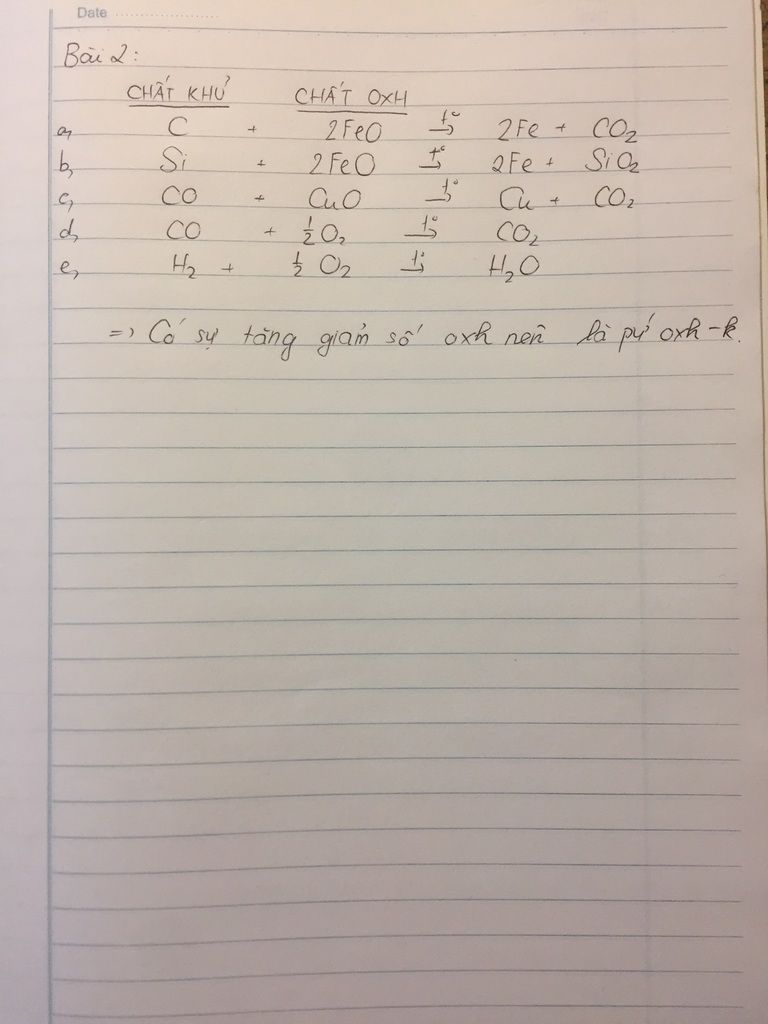 Date ....................
Bài 2:
CHẤT KHỬ CHẤT OXH
a, C + 2FeO t°→ 2Fe + CO₂
b, Si + 2FeO t°→ 2Fe + SiO₂
c, CO + CuO t°→ Cu + CO₂
d, CO + ½ O₂ t°→ CO₂
e, H₂ + ½ O₂ t°→ H₂O
=> Có sự tăng giảm số oxh nên là pứ oxh-k.